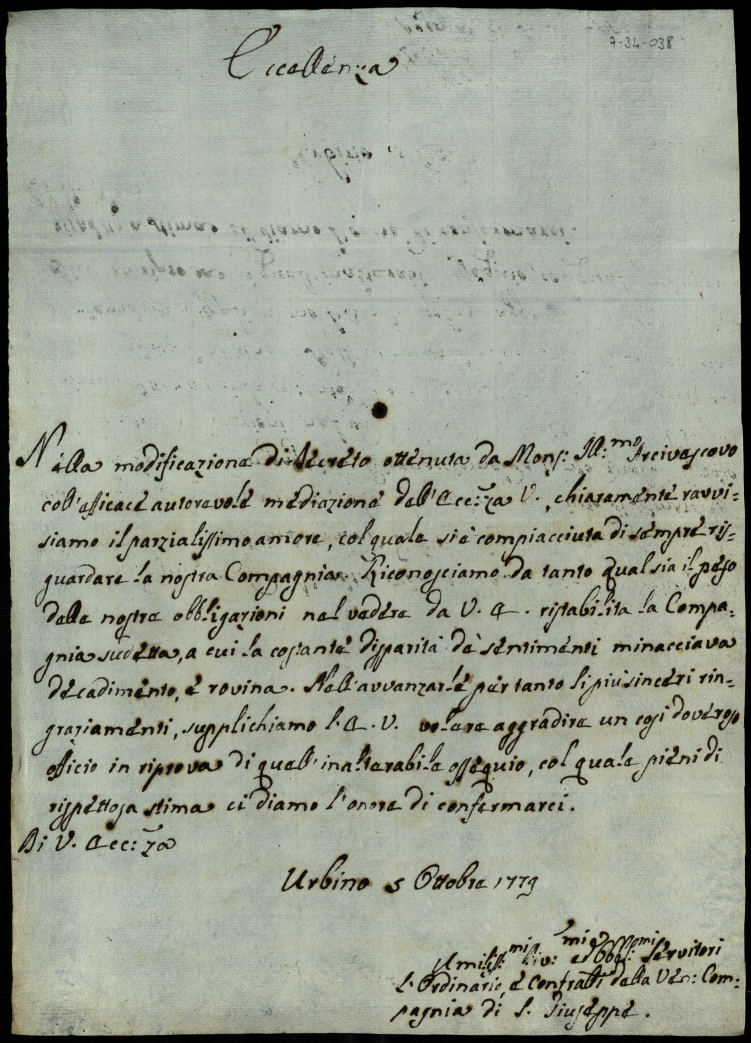 7-34-038
Eccellenza
Nella modificazione di decreto ottenuta da Monsʳ: Ill:ᵐᵒ Arcivescovo
coll'efficace autorevole mediazione dell'Ecc:za V., chiaramente ravvi=
siamo il parzialissimo amore, col quale si è compiacciuta di sempre ris=
guardare la nostra Compagnia. Riconosciamo da tanto qual sia il peso
delle nostre obbligazioni nel vedere da V. E. ristabilita la Compa=
gnia sudetta, a cui la costante disparità de sentimenti minacciava
decadimento, e rovina. Nell'avvanzarle per tanto li più sinceri rin=
graziamenti, supplichiamo l'E.V. volere aggradire un così doveroso
officio in riprova di quell'inalterabile ossequio, col quale pieni di
rispettosa stima ci diamo l'onore di confermarci.
Di V. Ecc:za
Urbino 5 Ottobre 1779
Umiliss:ᵐⁱ Div:ᵐⁱ ed Obbl:ᵐⁱ Servitori
L'Ordinario, e Confratti della Ven: Com=
pagnia di S. Giuseppe.